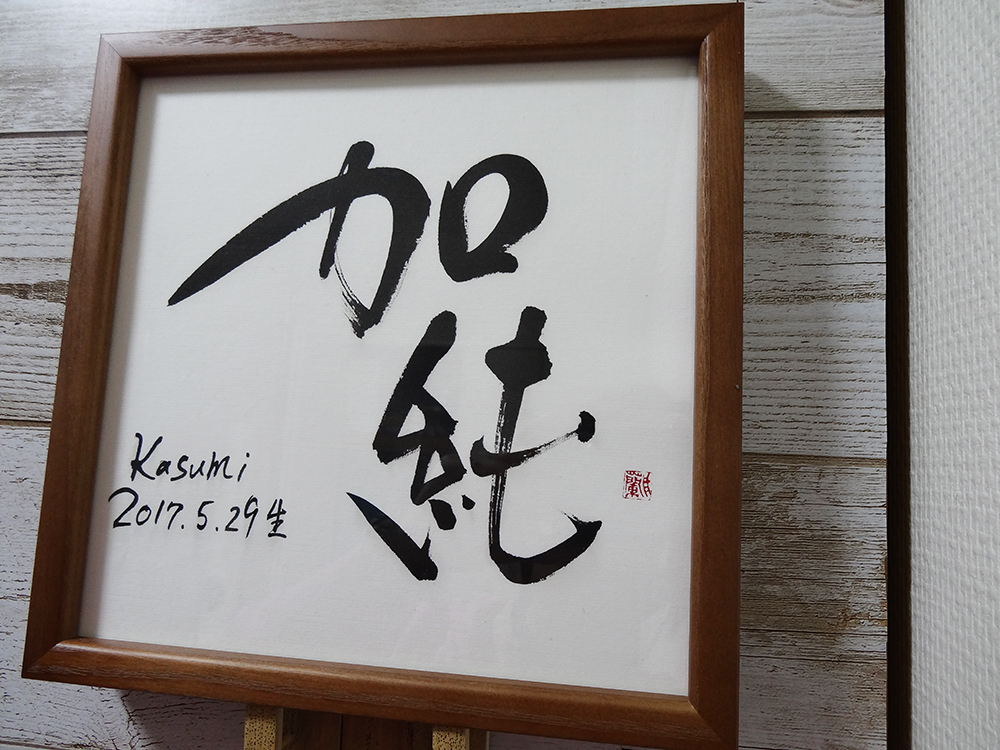 加純
Kasumi
2017.5.29生